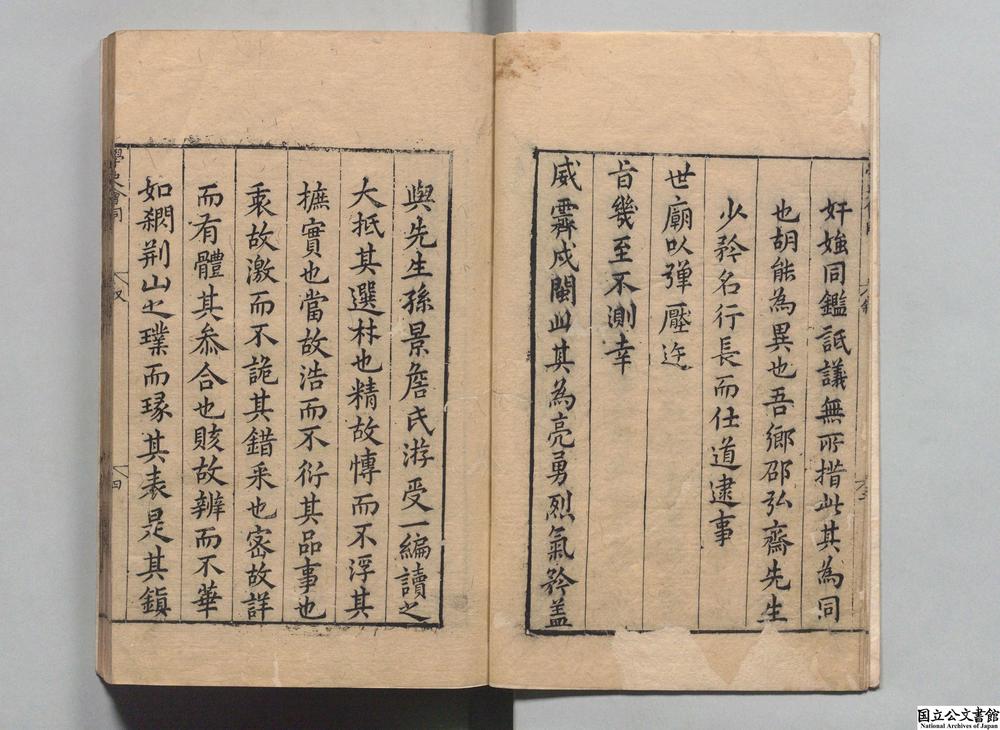 奸媸同鑑詆議無所措此其為同
也胡能為異也吾鄉邵弘齋先生
少矜名行長而仕道逮事
世廟以彈壓迕
旨幾至不測幸
威霽戍閩此其為亮勇烈氣矜盖
與先生孫景詹氏游受一編讀之
大抵其選材也精故慱而不浮其
摭實也當故浩而不衍其品事也
衷故激而不詭其錯采也宻故詳
而有體其叅合也賅故辨而不華
如瓓荆山之璞而瑑其表是其鎮
學史會同
叙
四
国立公文書館
National Archives of Japan